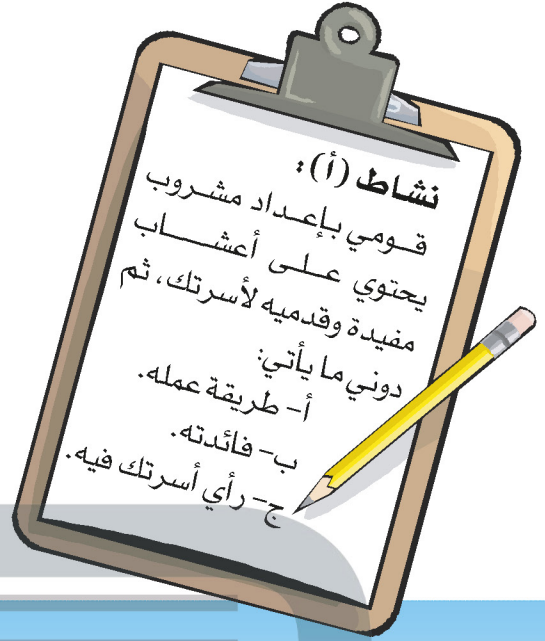 نشاط (أ):
قومي بإعداد مشروب
يحتوي على أعشاب
مفيدة وقدميه لأسرتك، ثم
دوني ما يأتي:
أ- طريقة عمله.
ب- فائدته.
ج- رأي أسرتك فيه.